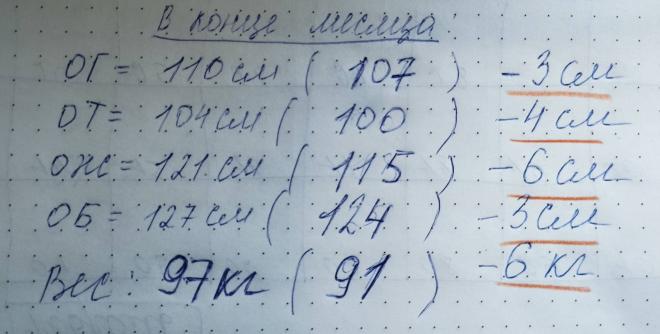 В конце месяца
ОГ = 110 см ( 107 ) - 3 см
ОТ = 104 см ( 100 ) - 4 см
ОЖ = 121 см ( 115 ) - 6 см
ОБ = 127 см ( 124 ) - 3 см
Вес: 97 кг ( 91 ) - 6 кг